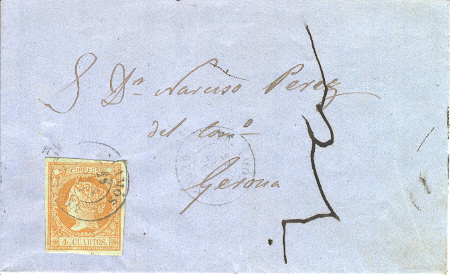 S. Dn. Narciso Perez
del comº
Gerona
CORREOS
4 CUARTOS.